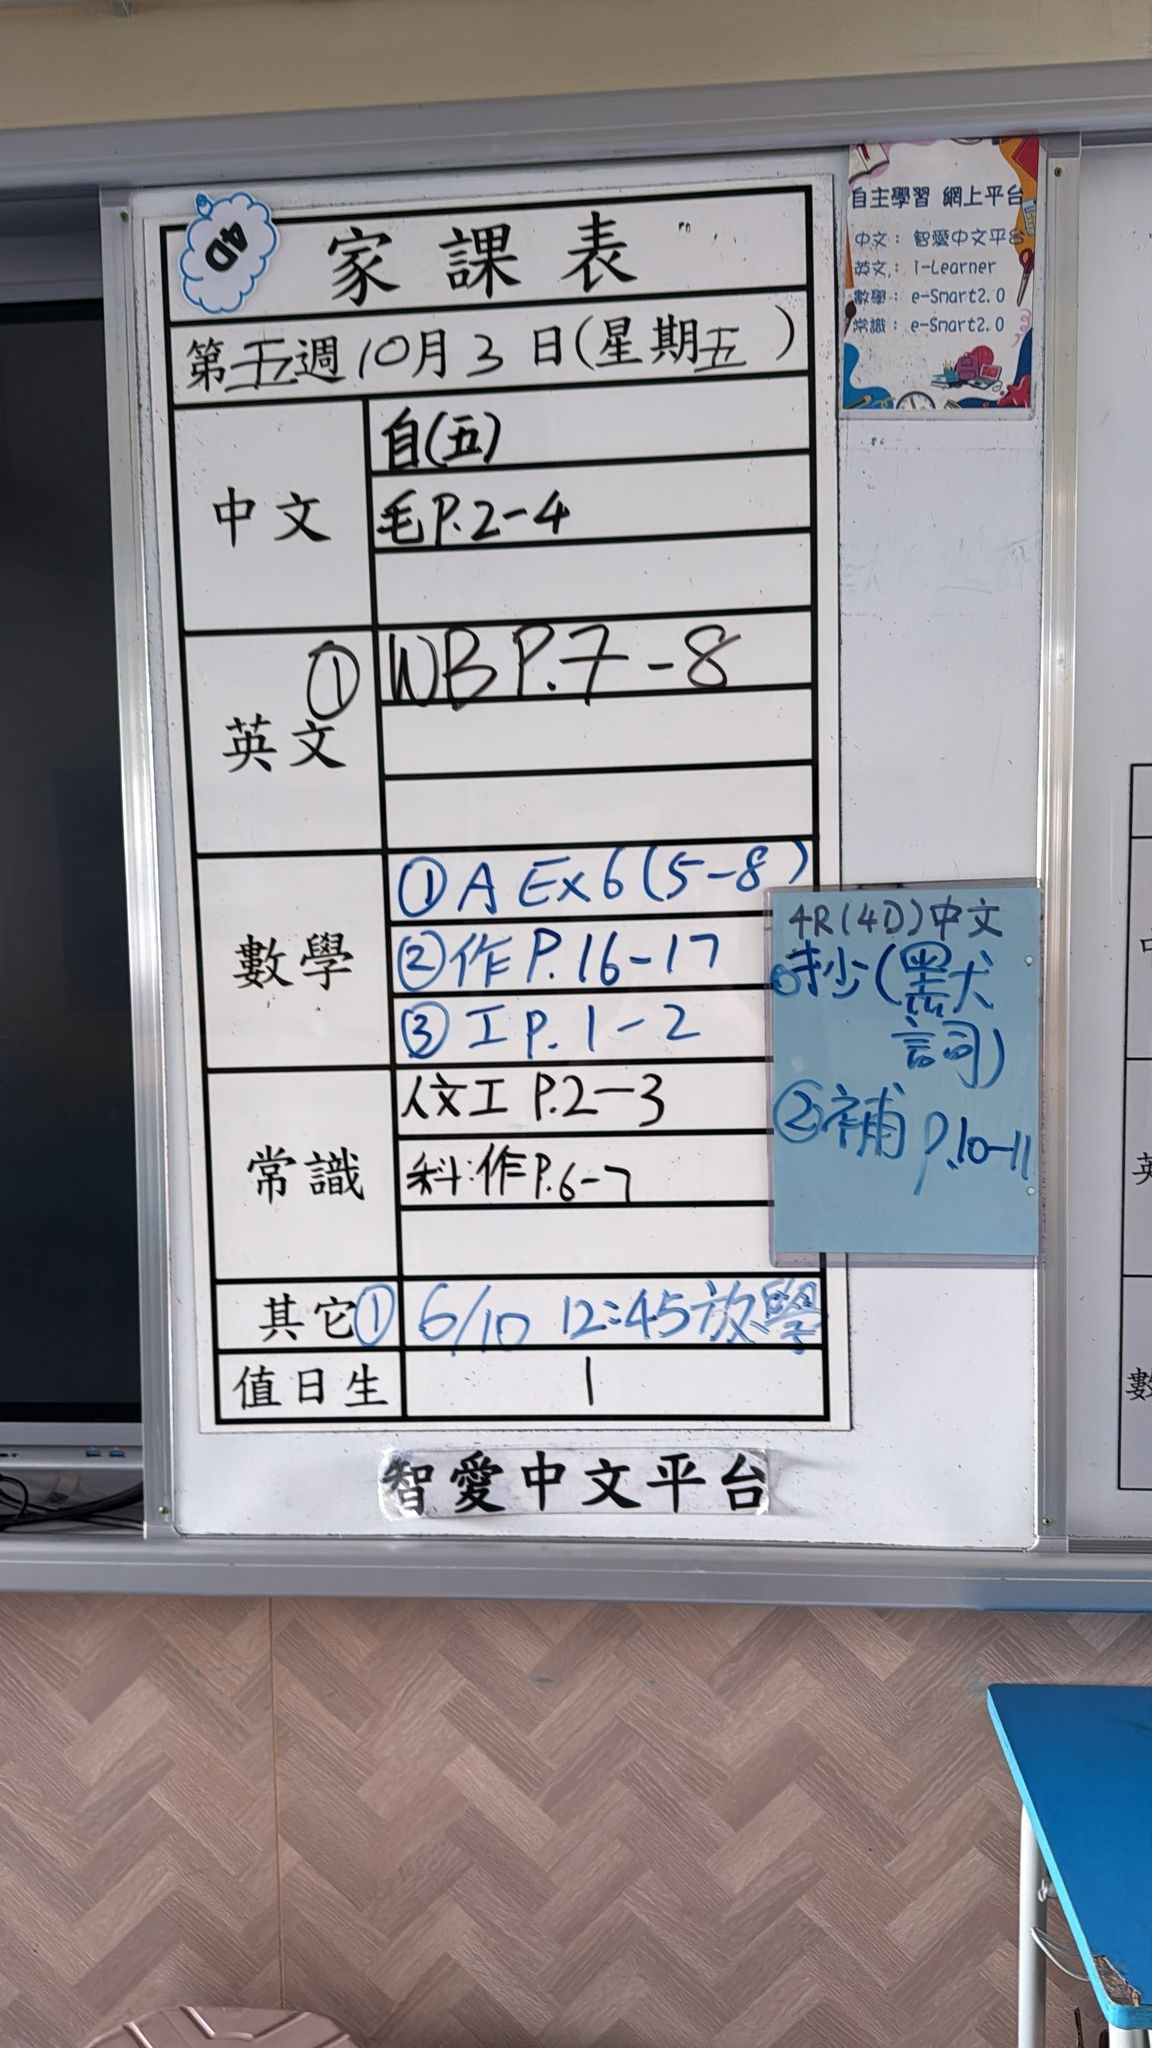 4D
家課表
第五週10月3日(星期五)
中文
自(五)
毛P.2-4
英文
① WB P.7-8
數學
①A Ex6(5-8)
②作P.16-17
③工P.1-2
常識
人文工 P.2-3
科:作P.6-7
其它
① 6/10 12:45放學
值日生
1
智愛中文平台
自主學習 網上平台
中文: 智愛中文平台
英文: i-Learner
數學: e-Smart2.0
常識: e-Smart2.0
4R(4D)中文
①抄(默
詞)
②補 P.10-11
英
數